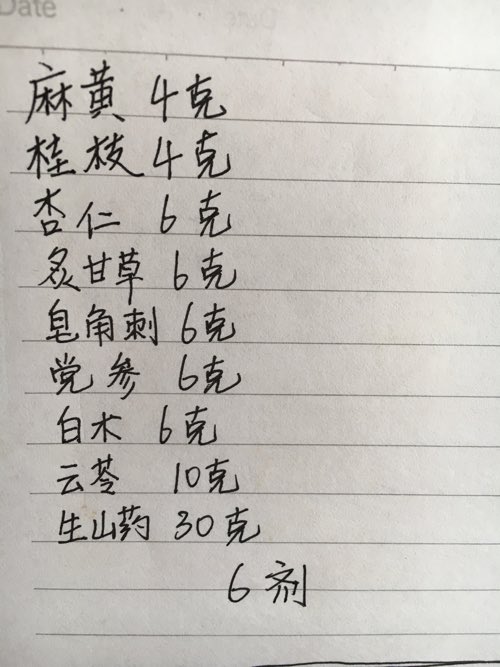 Date
麻黄 4克
桂枝 4克
杏仁 6克
炙甘草 6克
皂角刺 6克
党参 6克
白术 6克
云苓 10克
生山药 30克
6剂